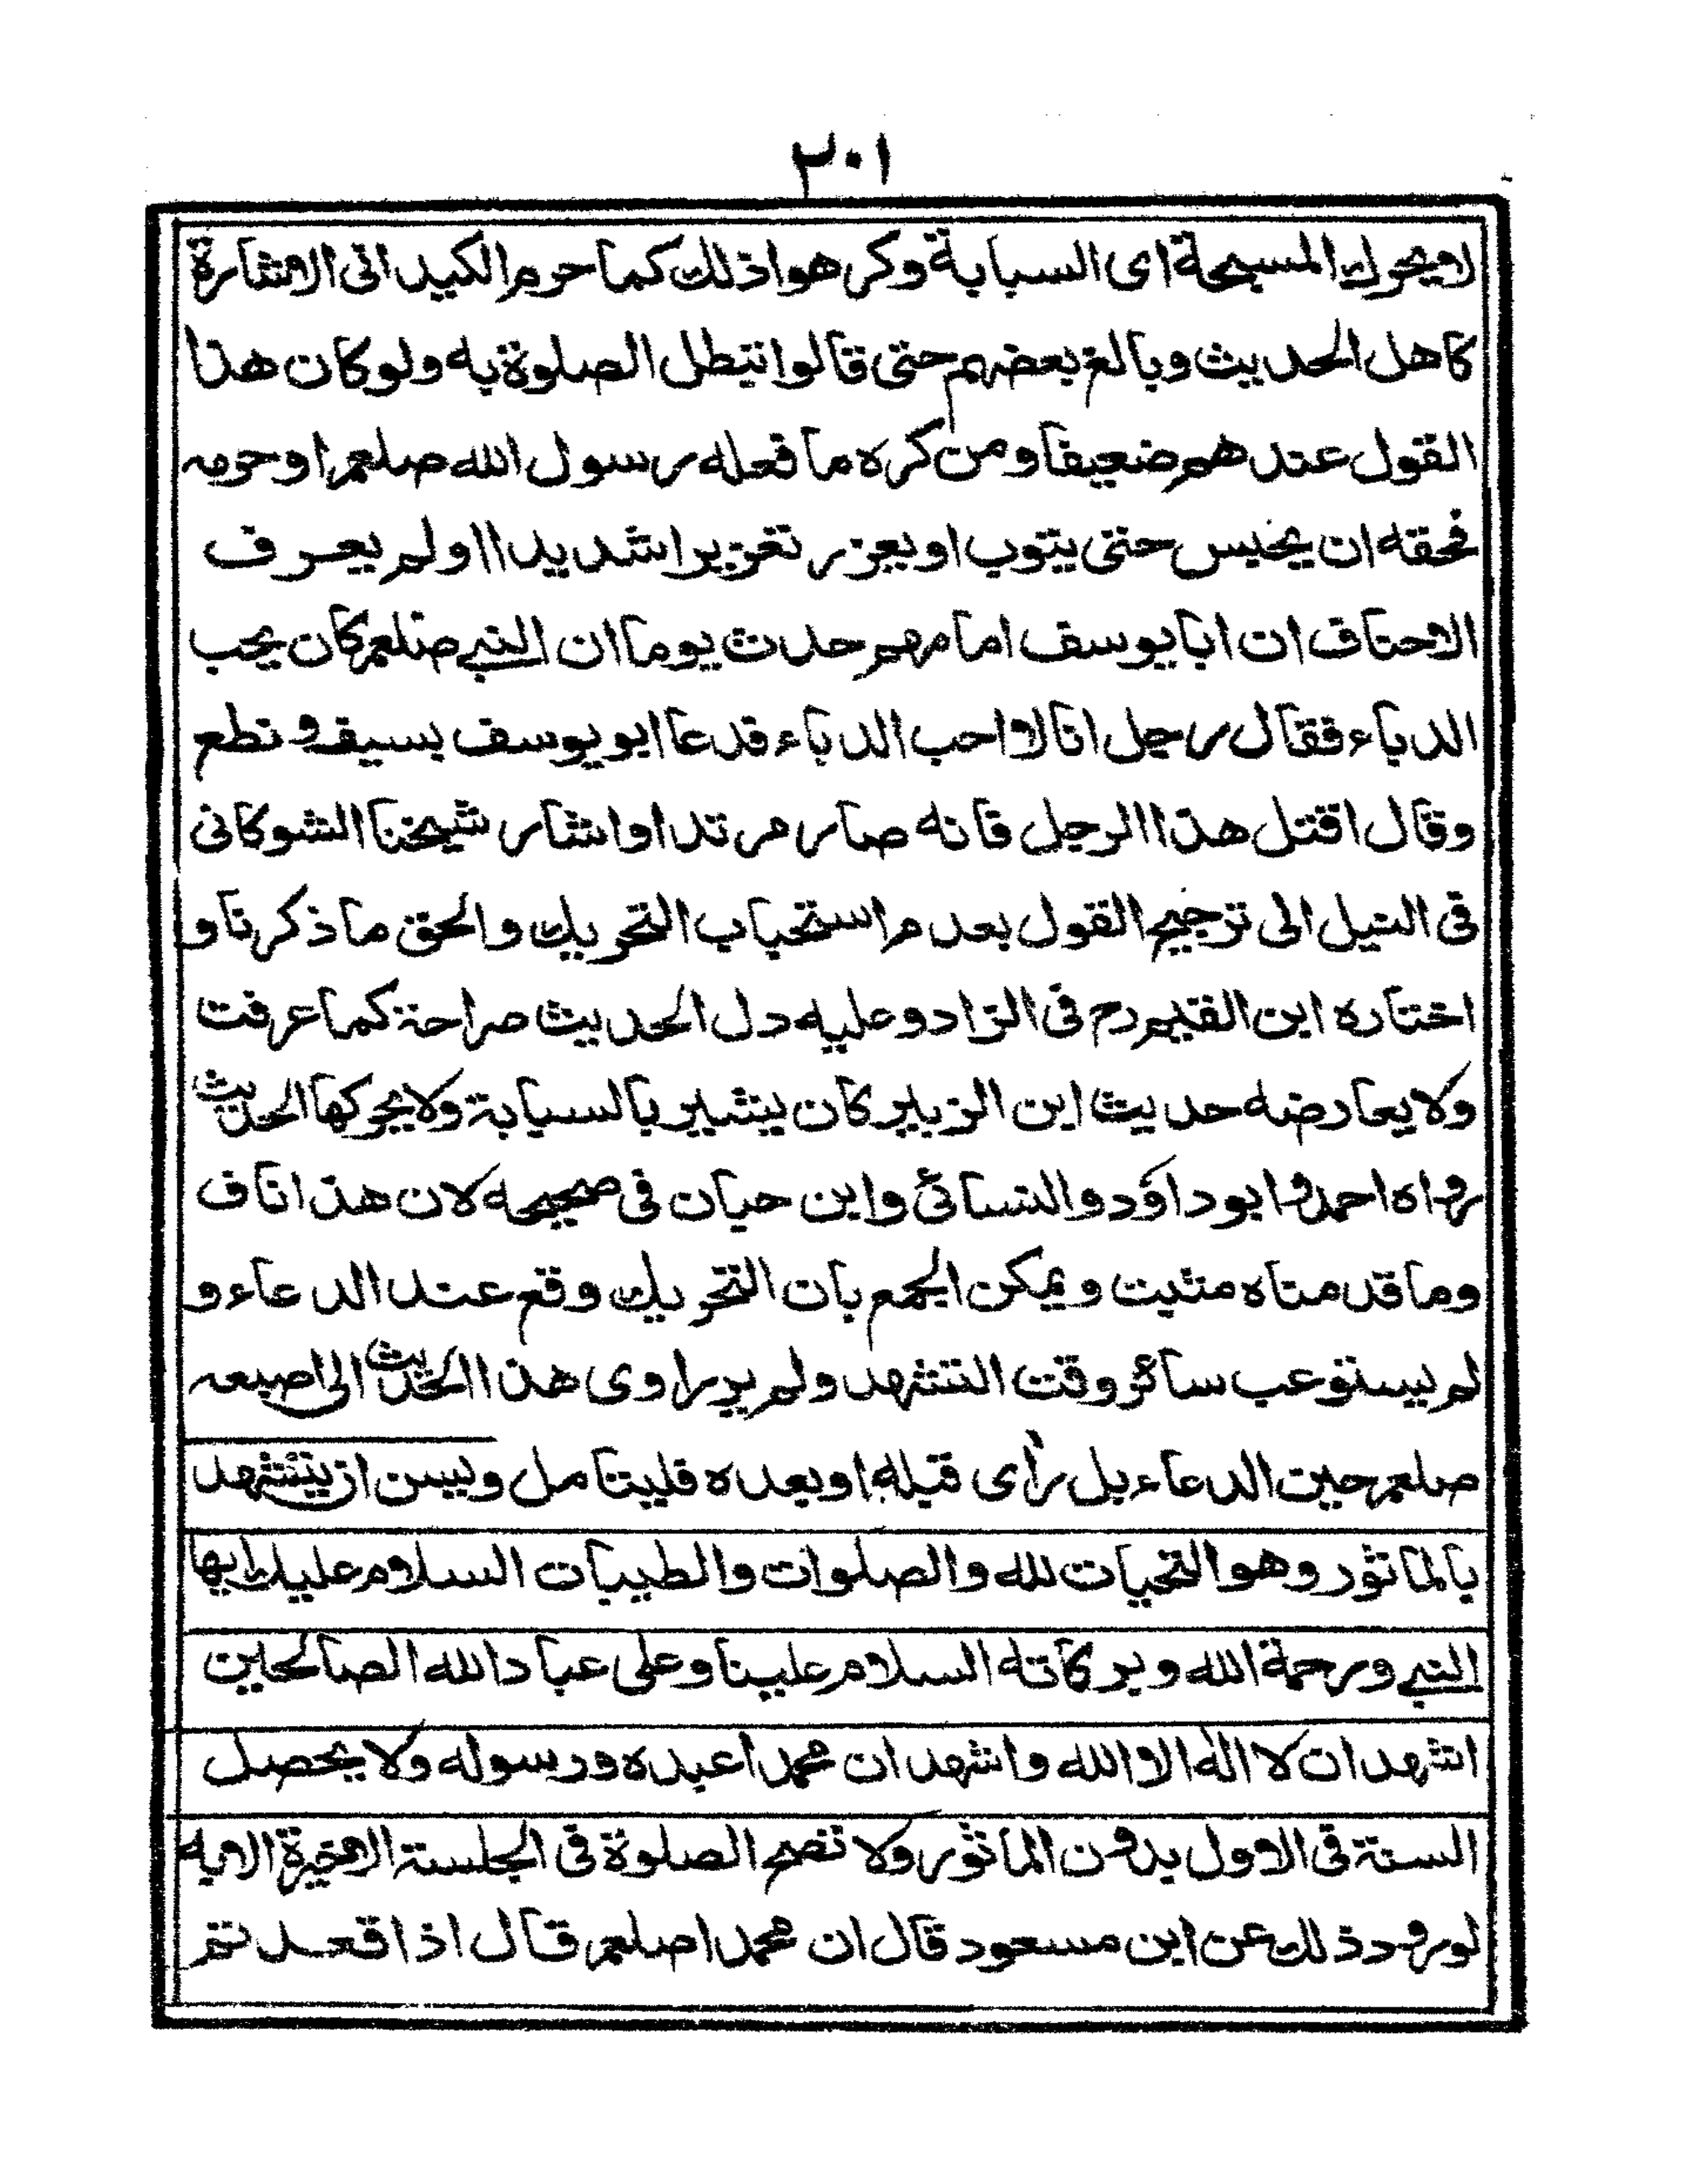 ٢٠١
لا يحرك المسبحة اى السبابة وكرهوا ذلك كما حرم الكيدانى الاشارة
كاهل الحديث وبالغ بعضهم حتى قالوا تبطل الصلوة به ولو كان هذا
القول عندهم ضعيفا ومن كره ما فعله رسول الله صلعم او حرمه
فحقه ان يحبس حتى يتوب او يعزر تعزيرا شديدا اولم يعرف
الاحناف ان ابا يوسف امامهم حدث يوما ان النبى صلعم كان يحب
الدباء فقال رجل انا لا احب الدباء فدعا ابو يوسف بسيف و نطع
وقال اقتل هذا الرجل فانه صار مرتدا واشار شيخنا الشوكانى
فى النيل الى ترجيح القول بعدم استحباب التحريك والحق ما ذكرنا و
اختاره ابن القيم رح فى الزاد وعليه دل الحديث صراحة كما عرفت
ولا يعارضه حديث ابن الزبير كان يشير بالسبابة ولا يحركها الحديث
رواه احمد وابو داؤد والنسائى وابن حبان فى صحيحه لان هذا ناف
وما قدمناه مثبت ويمكن الجمع بان التحريك وقع عند الدعاء و
لم يستوعب سائر وقت التشهد ولم ير راوى هذا الحديث الى اصبعه
صلعم حين الدعاء بل رأى قبله او بعده فليتامل ويسن ان يتشهد
بالماثور وهو التحيات لله والصلوات والطيبات السلام عليك ايها
النبى ورحمة الله وبركاته السلام علينا وعلى عباد الله الصالحين
اشهد ان لا اله الا الله واشهد ان محمدا عبده ورسوله ولا يحصل
السنة فى الاول بدون الماثور ولا تصح الصلوة فى الجلسة الاخيرة الا به
لورود ذلك عن ابن مسعود قال ان محمدا صلعم قال اذا قعدتم